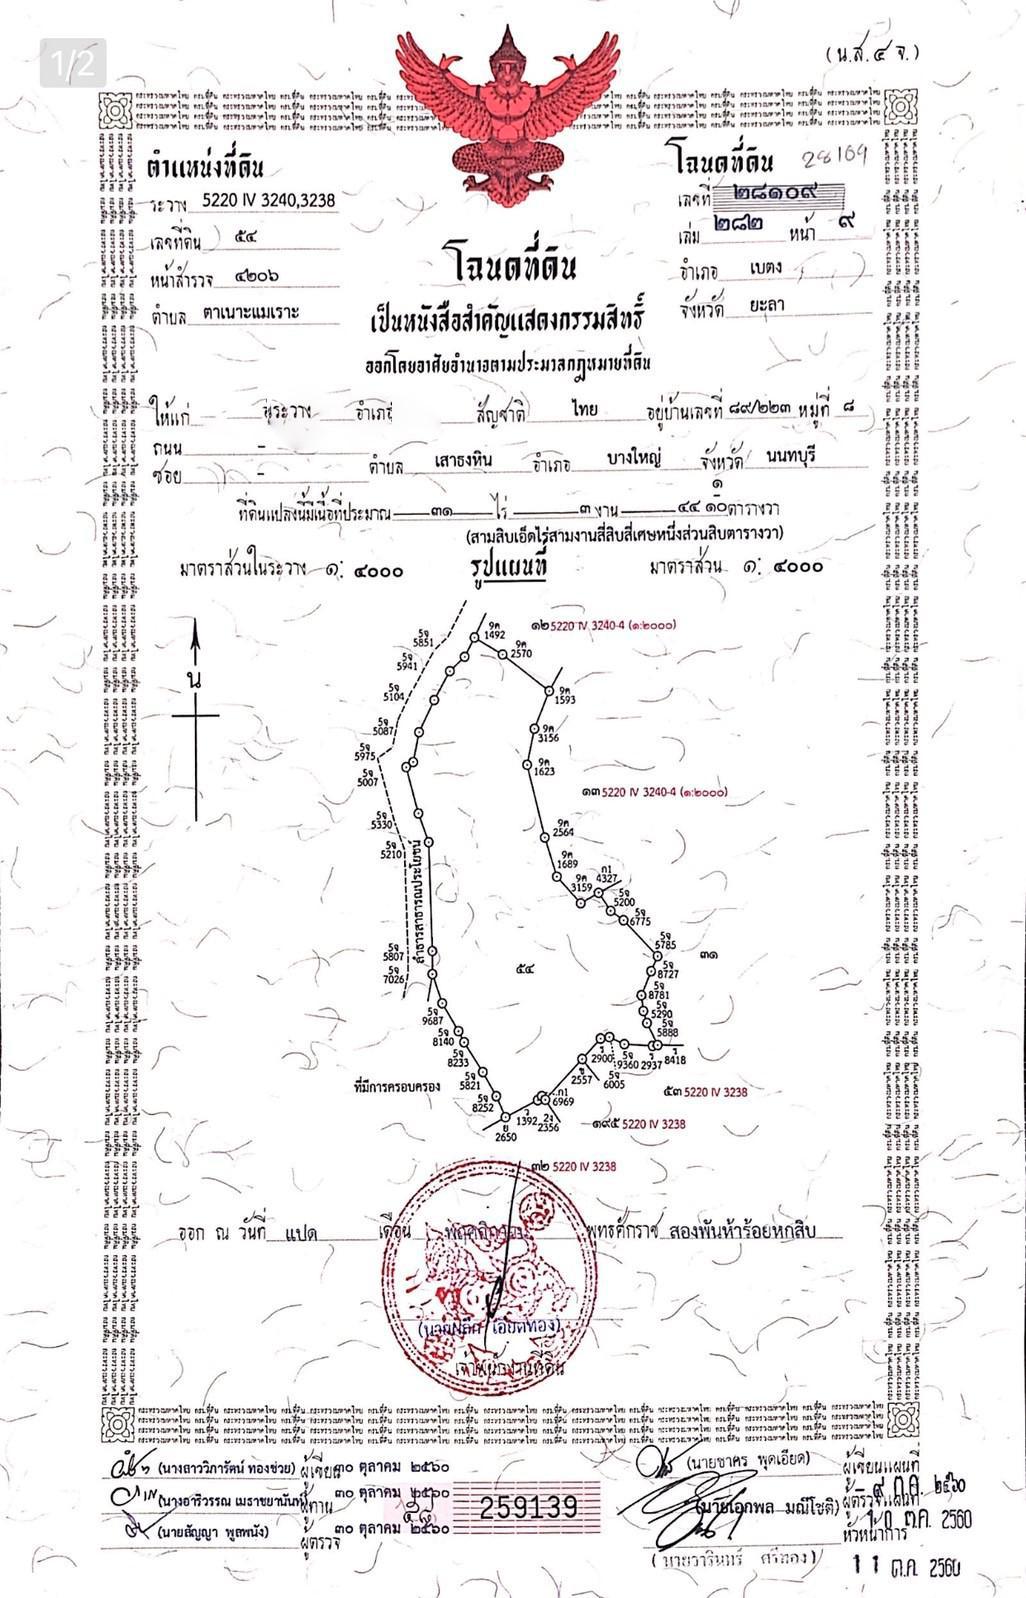 1/2
(น.ส.๔ จ.)
ตำแหน่งที่ดิน
ระวาง 5220 IV 3240,3238
เลขที่ดิน ๕๔
หน้าสำรวจ ๔๒๐๖
ตำบล ตาเนาะแมเราะ
โฉนดที่ดิน 28109
เลขที่ ๒๘๑๐๙
เล่ม ๒๘๒ หน้า ๙
อำเภอ เบตง
จังหวัด ยะลา
โฉนดที่ดิน
เป็นหนังสือสำคัญแสดงกรรมสิทธิ์
ออกโดยอาศัยอำนาจตามประมวลกฎหมายที่ดิน
ให้แก่ สัญชาติ ไทย อยู่บ้านเลขที่ ๘๙/๒๒๓ หมู่ที่ ๘
ถนน -
ซอย - ตำบล เสาธงหิน อำเภอ บางใหญ่ จังหวัด นนทบุรี
ที่ดินแปลงนี้มีเนื้อที่ประมาณ ๓๑ ไร่ ๓ งาน ๔๔ ๑/๑๐ ตารางวา
(สามสิบเอ็ดไร่สามงานสี่สิบสี่เศษหนึ่งส่วนสิบตารางวา)
มาตราส่วนในระวาง ๑: ๔๐๐๐ รูปแผนที่ มาตราส่วน ๑: ๔๐๐๐
น
๑๒ 5220 IV 3240-4 (๑:๒๐๐๐)
5จ 5851
9ค 1492
9ค 2570
5จ 5941
5จ 5104
9ค 1593
5จ 5087
9ค 3156
5จ 5975
9ค 1623
5จ 5007
๑๓ 5220 IV 3240-4 (๑:๒๐๐๐)
5จ 5330
9ค 2564
5จ 5210
9ค 1689
ลำธารสาธารณประโยชน์
9ค 3159
ก1 4327
5จ 5200
5จ 6775
5จ 5785
๓๑
5จ 5807
5จ 7026
๕๔
5จ 8727
5จ 8781
5จ 5290
5จ 9687
5จ 5888
5จ 8140
5จ 8233
2900
5จ 9360
2937
8418
2557
5จ 6005
5จ 5821
ที่มีการครอบครอง
๕๓ 5220 IV 3238
5จ 8252
ก1 6969
1392
2ง 2356
2650
๑๙๕ 5220 IV 3238
๓๒ 5220 IV 3238
ออก ณ วันที่ แปด เดือน พฤศจิกายน พุทธศักราช สองพันห้าร้อยหกสิบ
เจ้าพนักงานที่ดิน
(นางสาววิภารัตน์ ทองช่วย) ผู้เขียน ๓๐ ตุลาคม ๒๕๖๐
ผู้ทาน ๓๐ ตุลาคม ๒๕๖๐
(นายสัญญา พูลพนัง) ผู้ตรวจ ๓๐ ตุลาคม ๒๕๖๐
259139
(นายชาคร พุดเอียด) ผู้เขียนแผนที่ ๙ ต.ค. ๒๕๖๐
(นายเอกพล มณีโชติ) ผู้ตรวจแผนที่ 10 ต.ค. 2560
หัวหน้าการ
(นายวารินทร์ ศรีทอง) 11 ต.ค. 2560